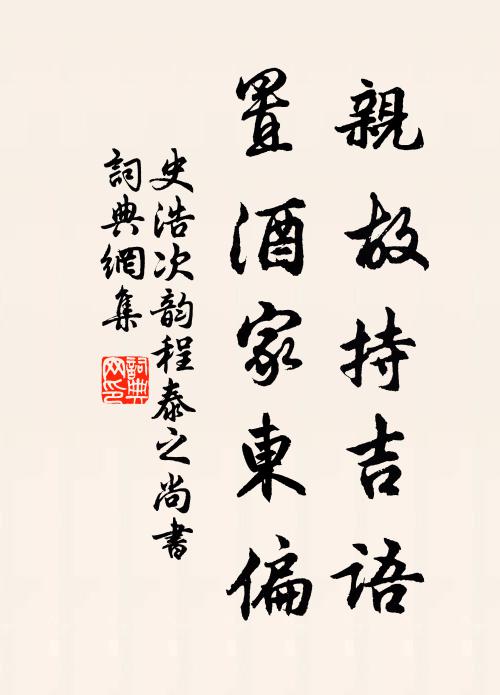 親故持吉語
置酒家東偏
史浩次韵程泰之尚書
詞典網集
詞典网印